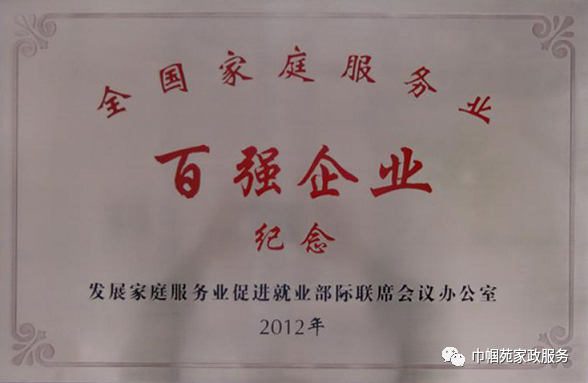 全国家庭服务业
百强企业
纪念
发展家庭服务业促进就业部际联席会议办公室
2012年
巾帼苑家政服务